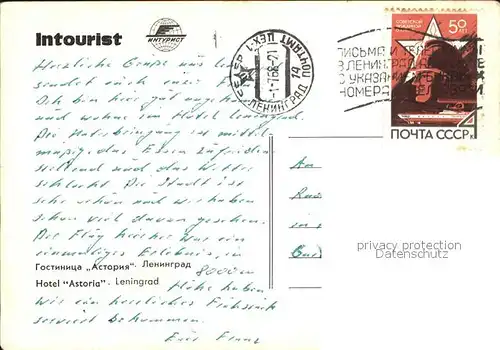 Intourist
ИНТУРИСТ
Herzliche Grüße aus
sendet euch
Ich bin hier gut
wohne im Hotel Leningrad.
Die Unterbringung ist mittel-
mäßig, das Essen zufrieden-
stellend und das Wetter
schlecht. Die Stadt ist
sehr schön und wir haben
schon viel davon gesehen.
Der Flug hierher war ein
einmaliges Erlebnis, in
Гостиница „Астория". Ленинград
8000 m
Hotel "Astoria". Leningrad
Höhe haben
wir ein herrliches Frühstück
serviert bekommen.
Euer Franz
ПОЧТАМТ ЦЕХ-1
ЛЕНИНГРАД
СОВЕТСКОЙ
50
ПИСЬМА И
В ЛЕНИНГРАД
С УКАЗАНИЕМ
НОМЕРА
ПОЧТА СССР
An
privacy protection
AnsichtskartenVersand.com